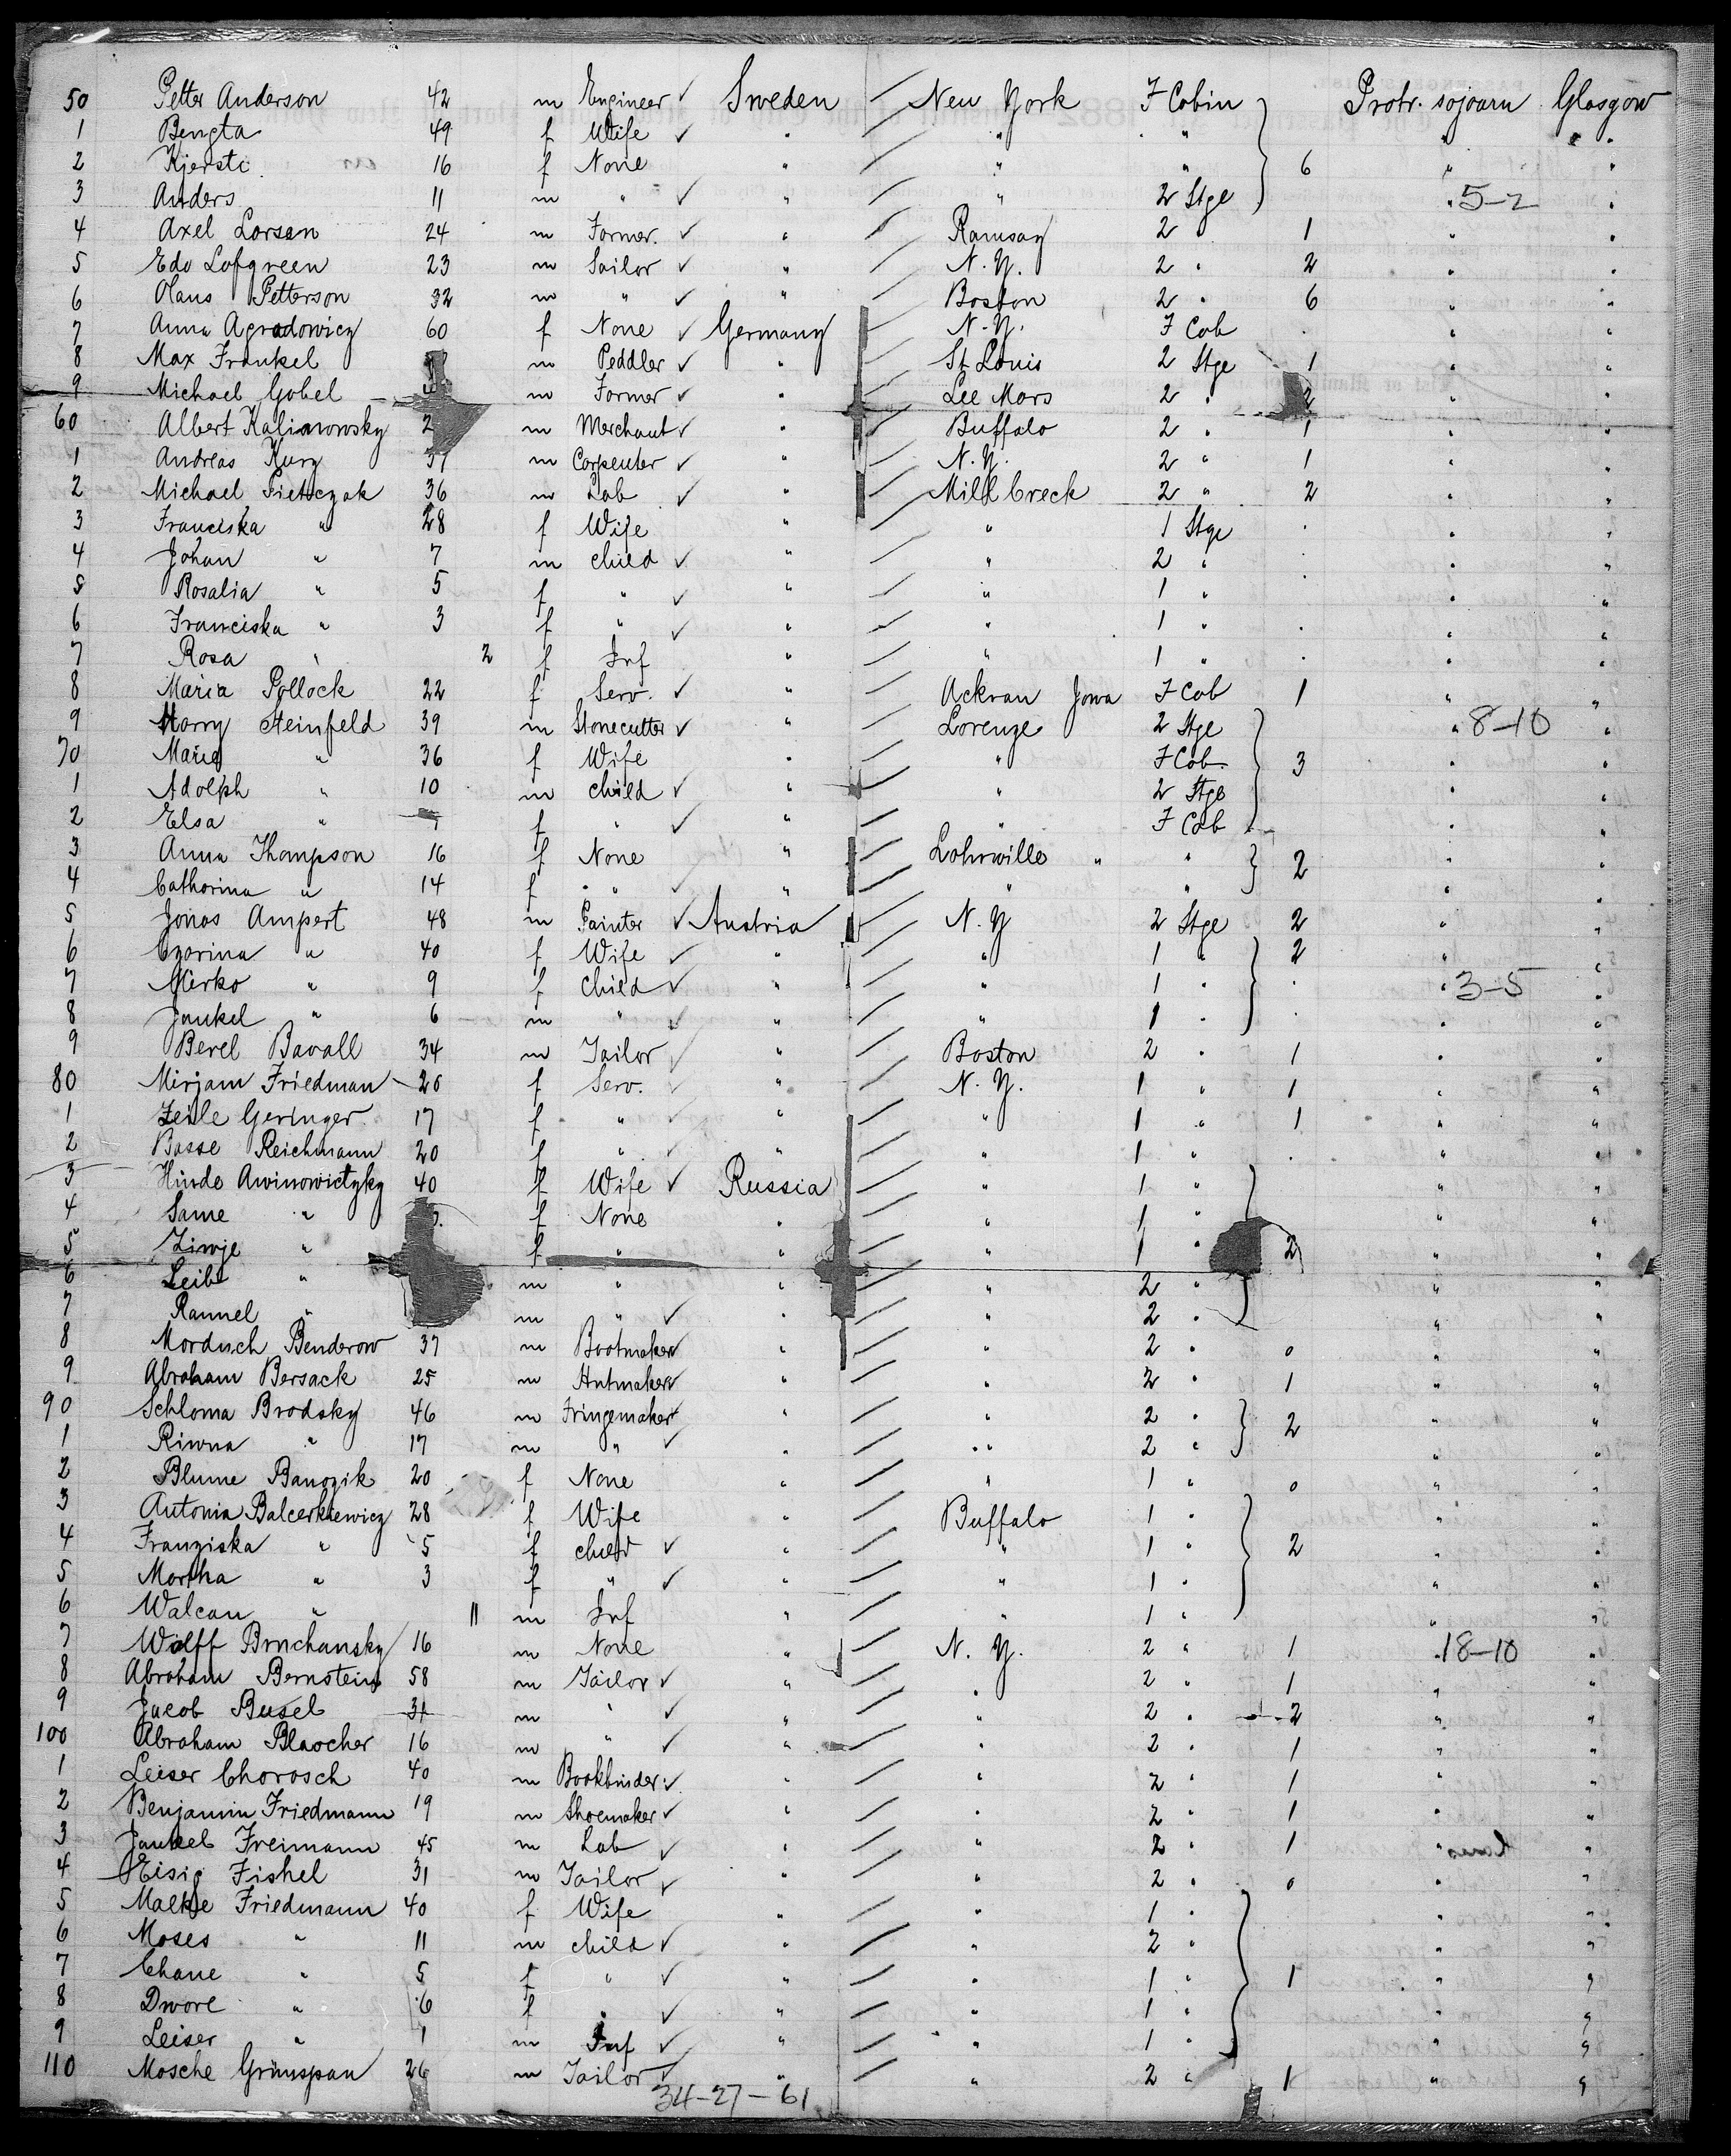 50 Petter Anderson 42 m Engineer ✓ Sweden / New York F Cabin Protr. sojourn Glasgow
1 Bengta 49 f Wife ✓ " / " " " "
2 Kjersti 16 f None " / " " 6 " "
3 Anders 11 m " ✓ " / " 2 Stge " 5-2 "
4 Axel Larsen 24 m Farmer. ✓ " / Ramsay 2 " 1 " "
5 Edv Lofgreen 23 m Sailor ✓ " / N. Y. 2 " 2 " "
6 Olaus Petterson 32 m " ✓ " / Boston 2 " 6 " "
7 Anna Agradowicz 60 f None ✓ Germany / N. Y. F Cab . " "
8 Max Frankel m Peddler ✓ " / St Louis 2 Stge 1 " "
9 Michael Gobel m Farmer ✓ " / Lee Mars 2 " 2 " "
60 Albert Kalinowsky 2 m Merchant ✓ " / Buffalo 2 " 1 " "
1 Andreas Kurz 37 m Carpenter ✓ " / N. Y. 2 " 1 " "
2 Michael Pietrczak 36 m Lab ✓ " / Mill Creek 2 " 2 " "
3 Franciska " 28 f Wife " / " 1 Stge . " "
4 Johan " 7 m child ✓ " / " 2 " . " "
5 Rosalia " 5 f " ✓ " / " 1 " . " "
6 Franciska " 3 f " ✓ " / " 1 " . " "
7 Rosa " 2 f Inf " / " 1 " . " "
8 Maria Pollock 22 f Serv. ✓ " / Ackran Jowa F Cab 1 " "
9 Harry Steinfeld 39 m Stonecutter ✓ " / Lorenze 2 Stge " 8-10 "
70 Maria " 36 f Wife " / " F Cab 3 " "
1 Adolph " 10 m child ✓ " / " 2 Stge " "
2 Elsa " f " ✓ " / " F Cab " "
3 Anna Thompson 16 f None " / Lohrwille " " 2 " "
4 Catharina " 14 f " ✓ " / " " " "
5 Jonas Ampert 48 m Painter ✓ Austria / N. Y 2 Stge 2 " "
6 Czarina " 40 f Wife ✓ " / " 1 " 2 " "
7 Mirko " 9 f child ✓ " / " 1 " . " 3-5 "
8 Jankel " 6 m " ✓ " / " 1 " . " "
9 Berel Bavall 34 m Tailor ✓ " / Boston 2 " 1 " "
80 Mirjam Friedman 20 f Serv. ✓ " / N. Y. 1 " 1 " "
1 Zeile Geringer 17 f " ✓ " / " 1 " 1 " "
2 Basse Reichmann 20 f " ✓ " / " 1 " . " "
3 Hinde Awinowictzky 40 f Wife ✓ Russia / " 1 " " "
4 Same " f None " / " 1 " " "
5 Ziwje " f " " / " 1 " 2 " "
6 Leib " m " " / " 2 " " "
7 Rannel " m " ✓ " / " 2 " " "
8 Morduch Benderow 37 m Bootmaker ✓ " / " 2 " 0 " "
9 Abraham Bersack 25 m Hutmaker ✓ " / " 2 " 1 " "
90 Schloma Brodsky 46 m Fringemaker ✓ " / " 2 " 2 " "
1 Riwna " 17 m " ✓ " / " 2 " " "
2 Blume Banozik 20 f None " / " 1 " 0 " "
3 Antonia Balcerkiewicz 28 f Wife " / Buffalo 1 " " "
4 Franziska " 5 f child ✓ " / " 1 " 2 " "
5 Martha " 3 f " ✓ " / " 1 " " "
6 Walcan " 11 m Inf " / " 1 " " "
7 Wolff Bruchansky 16 m None " / N. Y. 2 " 1 " 18-10 "
8 Abraham Bernstein 58 m Tailor ✓ " / " 2 " 1 " "
9 Jacob Busel 31 m " ✓ " / " 2 " 2 " "
100 Abraham Blaocher 16 m " ✓ " / " 2 " 1 " "
1 Leiser Chorosch 40 m Bookbinder ✓ " / " 2 " 1 " "
2 Benjamin Friedmann 19 m Shoemaker ✓ " / " 2 " 1 " "
3 Jankel Freimann 45 m Lab ✓ " / " 2 " 1 " "
4 Eisig Fishel 31 m Tailor ✓ " / " 2 " 0 " "
5 Malkje Friedmann 40 f Wife " / " 1 " " "
6 Moses " 11 m child ✓ " / " 2 " " "
7 Chane " 5 f " ✓ " / " 1 " 1 " "
8 Dwore " 6 f " ✓ " / " 1 " " "
9 Leiser " 1 m Inf ✓ " / " 1 " " "
110 Mosche Grünspan 26 m Tailor ✓ " / " 2 " 1 " "
34-27-61